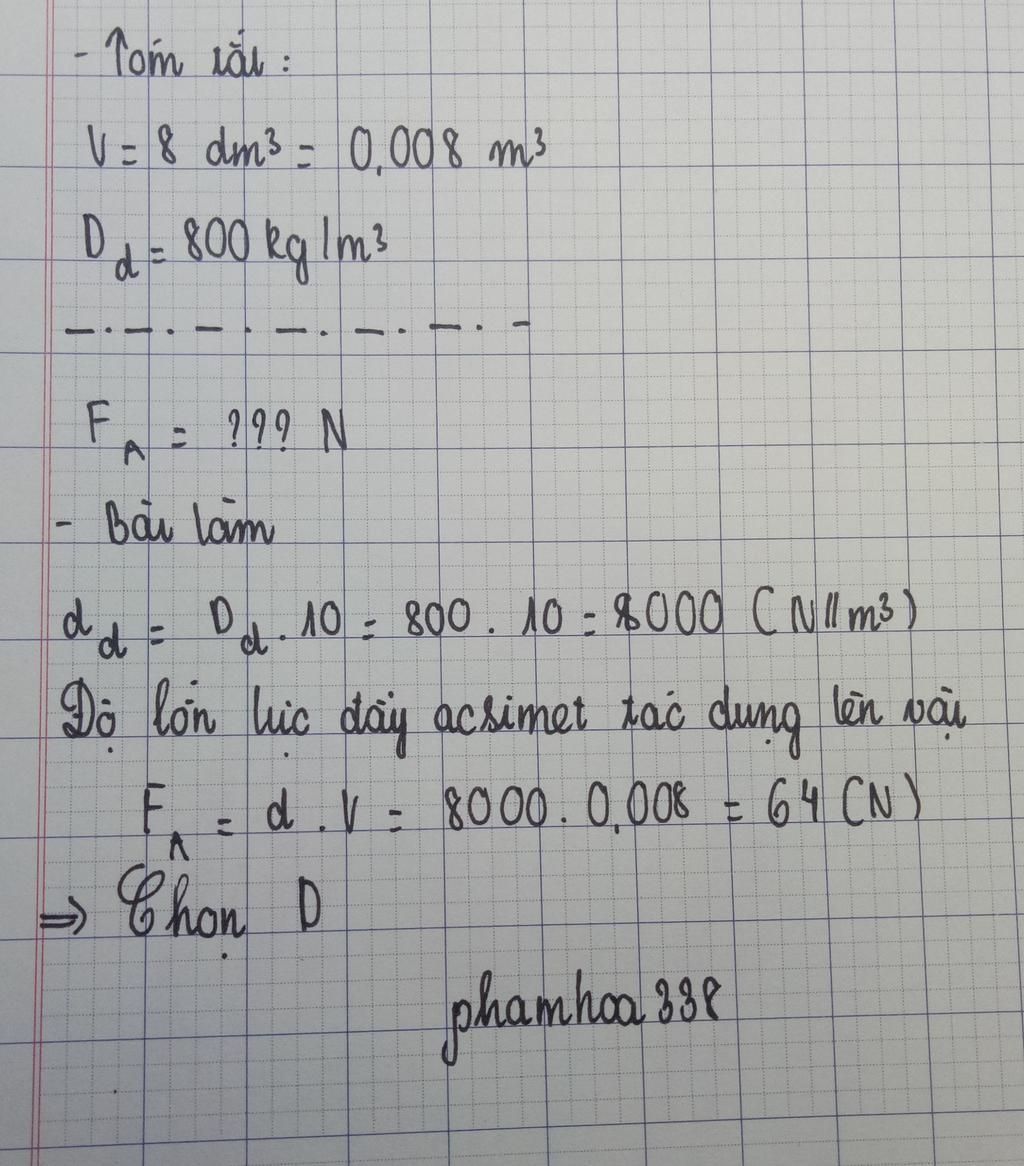 - Tóm tắt :
V = 8 dm³ = 0,008 m³
D_d = 800 kg/m³
F_A = ??? N
- Bài làm
d_d = D_d . 10 = 800 . 10 = 8000 (N//m³)
Độ lớn lực đẩy acsimet tác dụng lên vật
F_A = d . V = 8000 . 0,008 = 64 (N)
⇒ Chọn D
phamhoa338